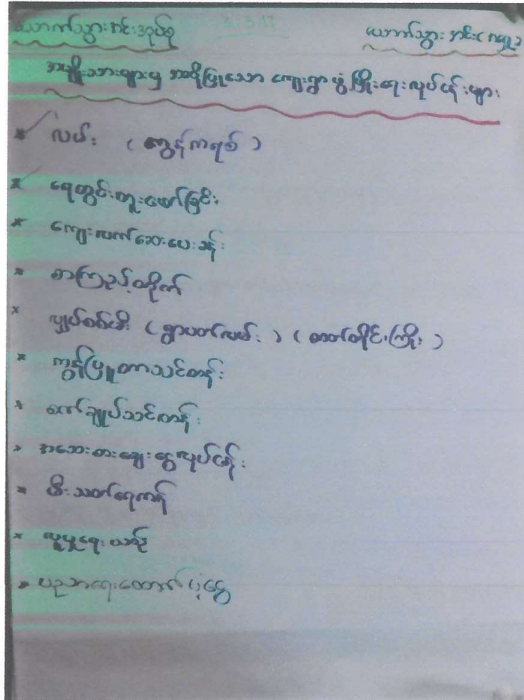 ယောက်သွားအင်းအုပ်စု ယောက်သွားအင်း(ကရူ)
အမျိုးသားများမှ အဆိုပြုသော ကျေးရွာဖွံ့ဖြိုးရေးလုပ်ငန်းများ
* လမ်း ( ကွန်ကရစ် )
* ရေတွင်းတူးဖော်ခြင်း
* ကျေးလက်ဆေးပေးခန်း
* စာကြည့်တိုက်
* လျှပ်စစ်မီး ( ရွာပတ်လမ်း ) ( ဓာတ်တိုင်းကြိုး )
* ကွန်ပြူတာသင်တန်း
* စက်ချုပ်သင်တန်း
* အသေးစားချေးငွေလုပ်ငန်း
* မီးသတ်ရေကန်
* လူမှုရေးယာဉ်
* ပညာရေးထောက်ပံ့ငွေ